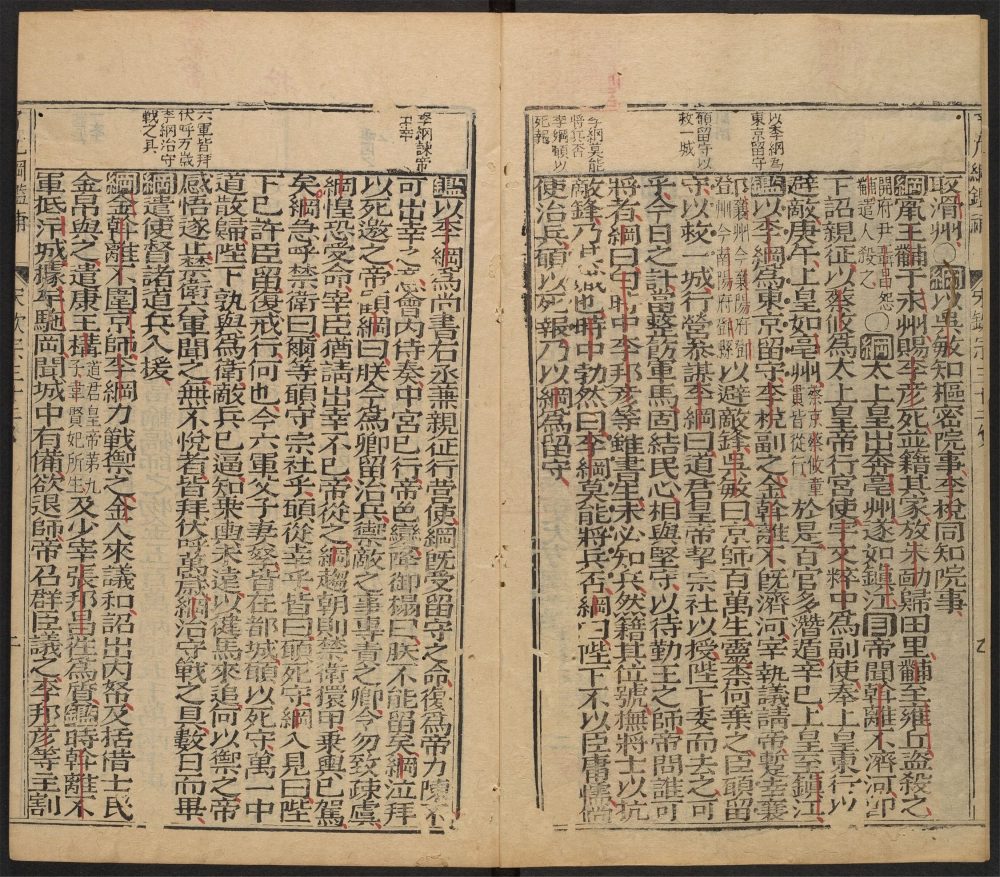 取滑州○綱以吳敏知樞密院事李梲同知院事
綱竄王黼于永州賜李彥死並籍其家放朱勔歸田里黼至雍丘盜殺之
開府尹聶昌怨
黼遣人殺之
○綱太上皇出奔亳州遂如鎮江目帝聞斡離不濟河即
下詔親征以蔡攸為太上皇帝行宮使宇文粹中為副使奉上皇東行以
避敵庚午上皇如亳州
蔡京蔡攸童
貫皆從行
於是百官多潛遁辛巳上皇至鎮江
綱以李綱為東京留守李梲副之金斡離不既濟河宰執議請帝暫幸襄
鄧
襄州今襄陽府鄧
州今南陽府鄧縣
以避敵鋒吳敏曰京師百萬生靈柰何棄之臣願留
守以救一城行營叅謀李綱曰道君皇帝挈宗社以授陛下委而去之可
乎今日之計當整飭軍馬固結民心相與堅守以待勤王之師帝問誰可
將者綱曰白時中李邦彥等雖書生未必知兵然籍其位號撫將士以抗
敵鋒乃其職也時中勃然曰李綱莫能將兵否綱曰陛下不以臣庸懦倘
使治兵願以死報乃以綱為留守
以李綱為
東京留守
願留守以
救一城
李綱莫能
將兵否
李綱願以
死報
鑑以李綱為尚書右丞兼親征行營使綱既受留守之命復為帝力陳不
可出幸之意會內侍奏中宮已行帝色變降御榻曰朕不能留矣綱泣拜
以死邀之帝顧綱曰朕今為卿留治兵禦敵之事專責之卿今勿致疎虞
綱惶恐受命宰臣猶請出幸不已帝從之綱趨朝則禁衛擐甲乗輿已駕
矣綱急呼禁衛曰爾等願守宗社乎願從幸乎皆曰願死守綱入見曰陛
下已許臣留復戒行何也今六軍父子妻孥皆在都城願以死守萬一中
道散歸陛下孰與為衛敵兵已逼知乗輿未遠以健馬來追何以禦之帝
感悟遂止禁衛六軍聞之無不悅者皆拜伏呼萬歲綱治守戰之具數日而畢
綱遣使督諸道兵入援
綱金斡離不圍京師李綱力戰禦之金人來議和詔出內帑及括借士民
金帛與之遣康王構
道君皇帝第九
子韋賢妃所生
及少宰張邦昌往為質鑑時斡離不
軍抵汴城據牟駝岡聞城中有備欲退師帝召群臣議之李邦彥等主割
李綱諫帝
六軍皆拜
伏呼万歲
李綱治守
戰之具